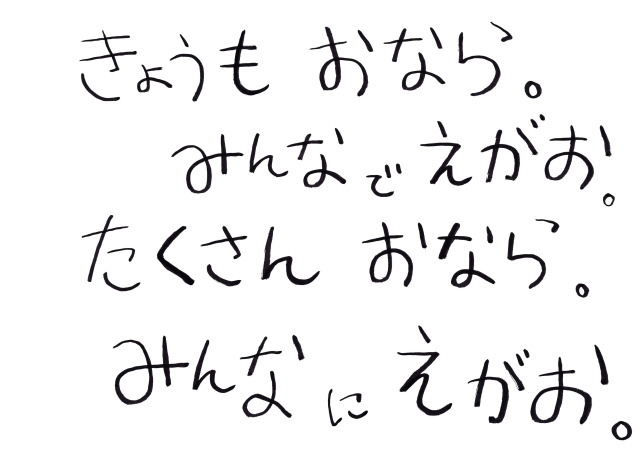 きょうも おなら。
みんなで えがお。
たくさん おなら。
みんなに えがお。